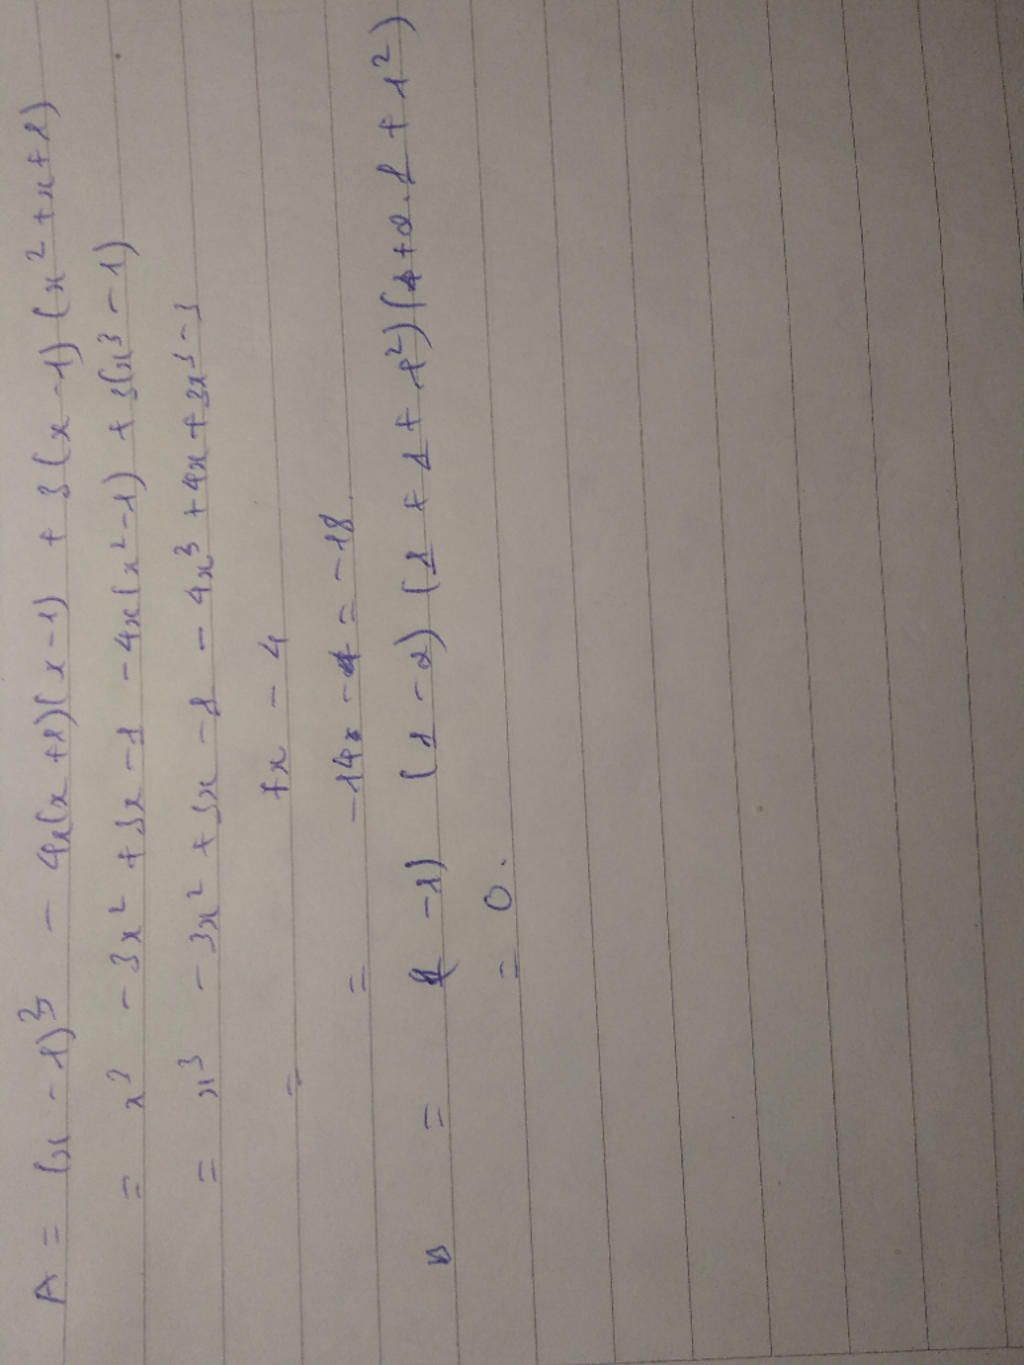 A = (x - 1)³ - 4x(x+1)(x-1) + 3(x-1)(x²+x+1)
= x³ - 3x² + 3x - 1 - 4x(x²-1) + 3(x³-1)
= x³ - 3x² + 3x - 1 - 4x³ + 4x + 3x³ - 3
= 7x - 4
= -14x - 4 = -18.
B = (1 - 1) (1 - 2) (1 + 1 + 1²) (4 + 2.1 + 1²)
= 0.